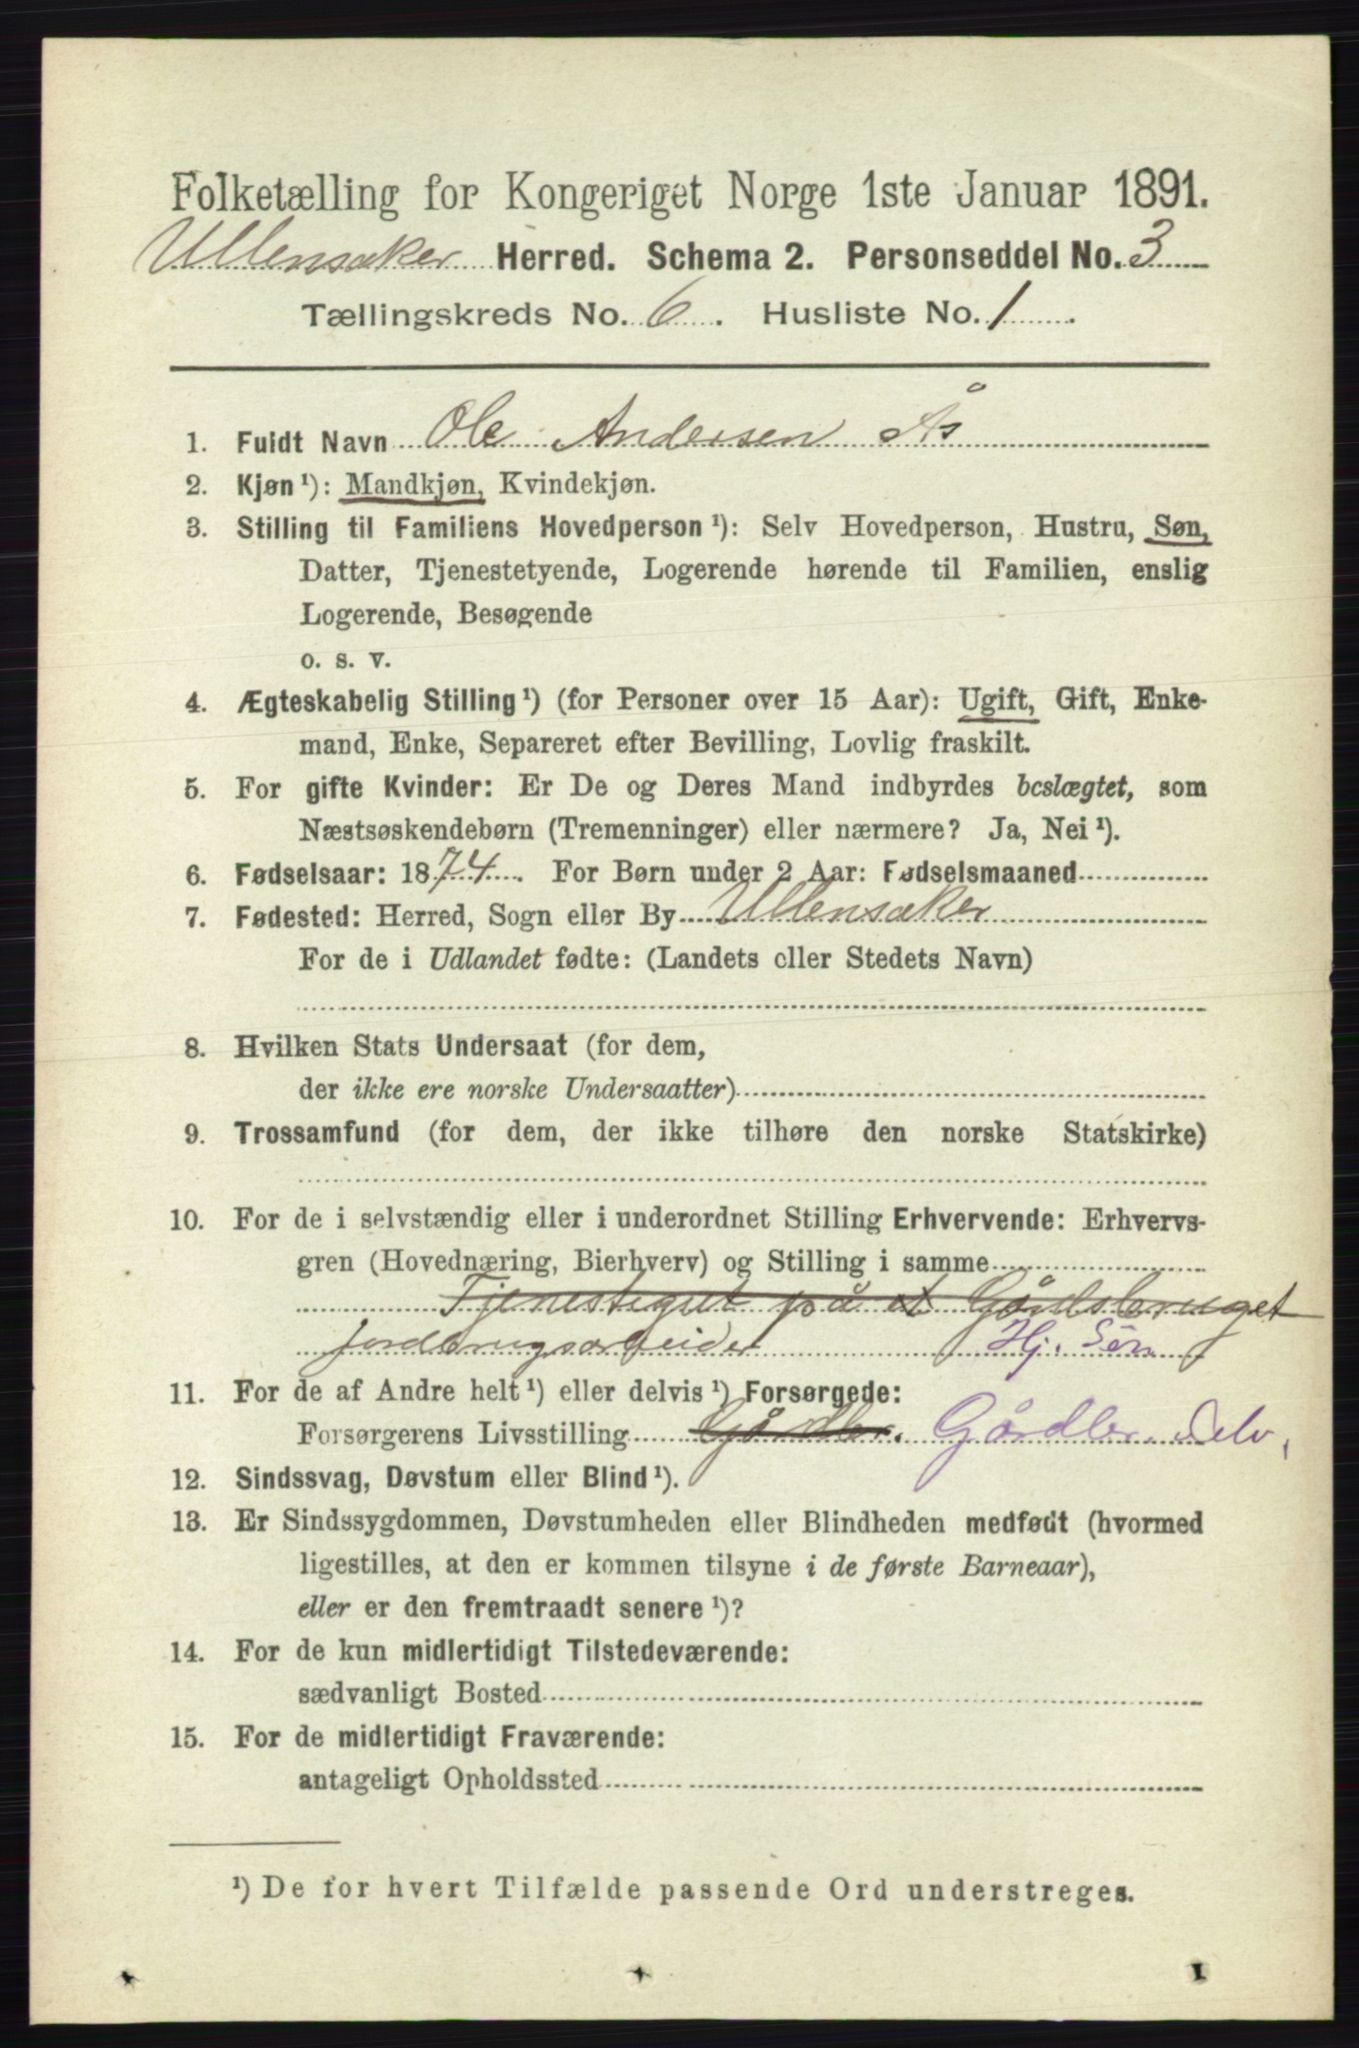 Folketælling for Kongeriget Norge 1ste Januar 1891.
Ullensaker Herred. Schema 2. Personseddel No. 3
Tællingskreds No. 6. Husliste No. 1.
1. Fuldt Navn Ole Andersen Ås
2. Kjøn ¹): Mandkjøn, Kvindekjøn.
3. Stilling til Familiens Hovedperson ¹): Selv Hovedperson, Hustru, Søn,
Datter, Tjenestetyende, Logerende hørende til Familien, enslig
Logerende, Besøgende
o. s. v.
4. Ægteskabelig Stilling ¹) (for Personer over 15 Aar): Ugift, Gift, Enke-
mand, Enke, Separeret efter Bevilling, Lovlig fraskilt.
5. For gifte Kvinder: Er De og Deres Mand indbyrdes beslægtet, som
Næstsøskendebørn (Tremenninger) eller nærmere? Ja, Nei ¹).
6. Fødselsaar: 1874. For Børn under 2 Aar: Fødselsmaaned
7. Fødested: Herred, Sogn eller By Ullensaker
For de i Udlandet fødte: (Landets eller Stedets Navn)
8. Hvilken Stats Undersaat (for dem,
der ikke ere norske Undersaatter)
9. Trossamfund (for dem, der ikke tilhøre den norske Statskirke)
10. For de i selvstændig eller i underordnet Stilling Erhvervende: Erhvervs-
gren (Hovednæring, Bierhverv) og Stilling i samme
Tjenestegut på Gårdsbruget
jordbrugsarbeider Hj. Søn
11. For de af Andre helt ¹) eller delvis ¹) Forsørgede:
Forsørgerens Livsstilling Gårdbr. Gårdbr. Selv,
12. Sindssvag, Døvstum eller Blind ¹).
13. Er Sindssygdommen, Døvstumheden eller Blindheden medfødt (hvormed
ligestilles, at den er kommen tilsyne i de første Barneaar),
eller er den fremtraadt senere ¹)?
14. For de kun midlertidigt Tilstedeværende:
sædvanligt Bosted
15. For de midlertidigt Fraværende:
antageligt Opholdssted
¹) De for hvert Tilfælde passende Ord understreges.